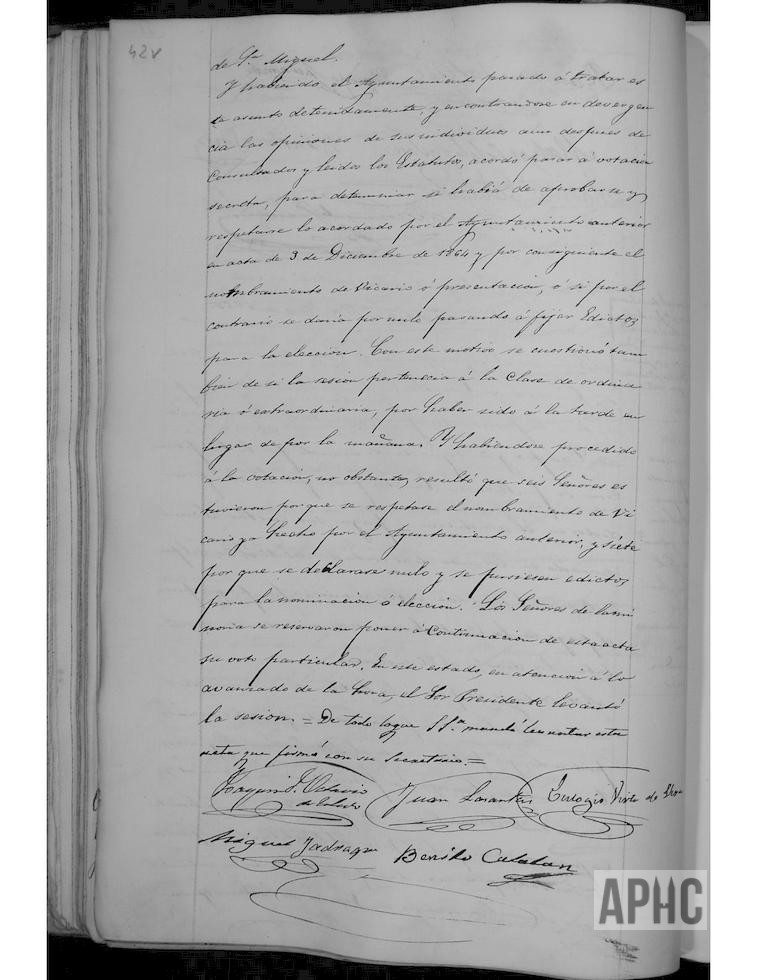 42v
de Sn. Miguel.
Y habiendo el Ayuntamiento pasado á tratar es
te asunto detenidamente, y encontrandose en devergen
cia las opiniones de sus individuos aun despues de
Consultados y leidos los Estatutos, acordó pasar á votacion
secreta, para determinar si habia de aprobarse y
respetarse lo acordado por el Ayuntamiento anterior
en acta de 3 de Diciembre de 1864 y por consiguiente el
nombramiento de Vicario ó presentacion, ó si por el
contrario se daria por nulo pasando á fijar Edictos
para la eleccion. Con este motivo se cuestionó tam
bien de si la sesion pertenecia á la Clase de ordina
ria ó extraordinaria, por haber sido á la tarde en
lugar de por la mañana. Y habiendose procedido
á la votacion, no obstante, resultó que seis Señores es
tuvieron por que se respetase el nombramiento de Vi
cario ya hecho por el Ayuntamiento anterior, y siete
por que se declarase nulo y se pusiesen edictos
para la nominacion ó eleccion. Los Señores de la mi
noria se reservaron poner á Continuacion de esta acta
su voto particular. En este estado, en atencion á lo
avanzado de la hora, el Sor Presidente levantó
la sesion. = De todo lo que S.Sª. mandó levantar esta
acta que firmó con su Secretario. =
Joaquin Juan Eulogio
de Toledo
Miguel Jadraque Benito Catalan
APHC